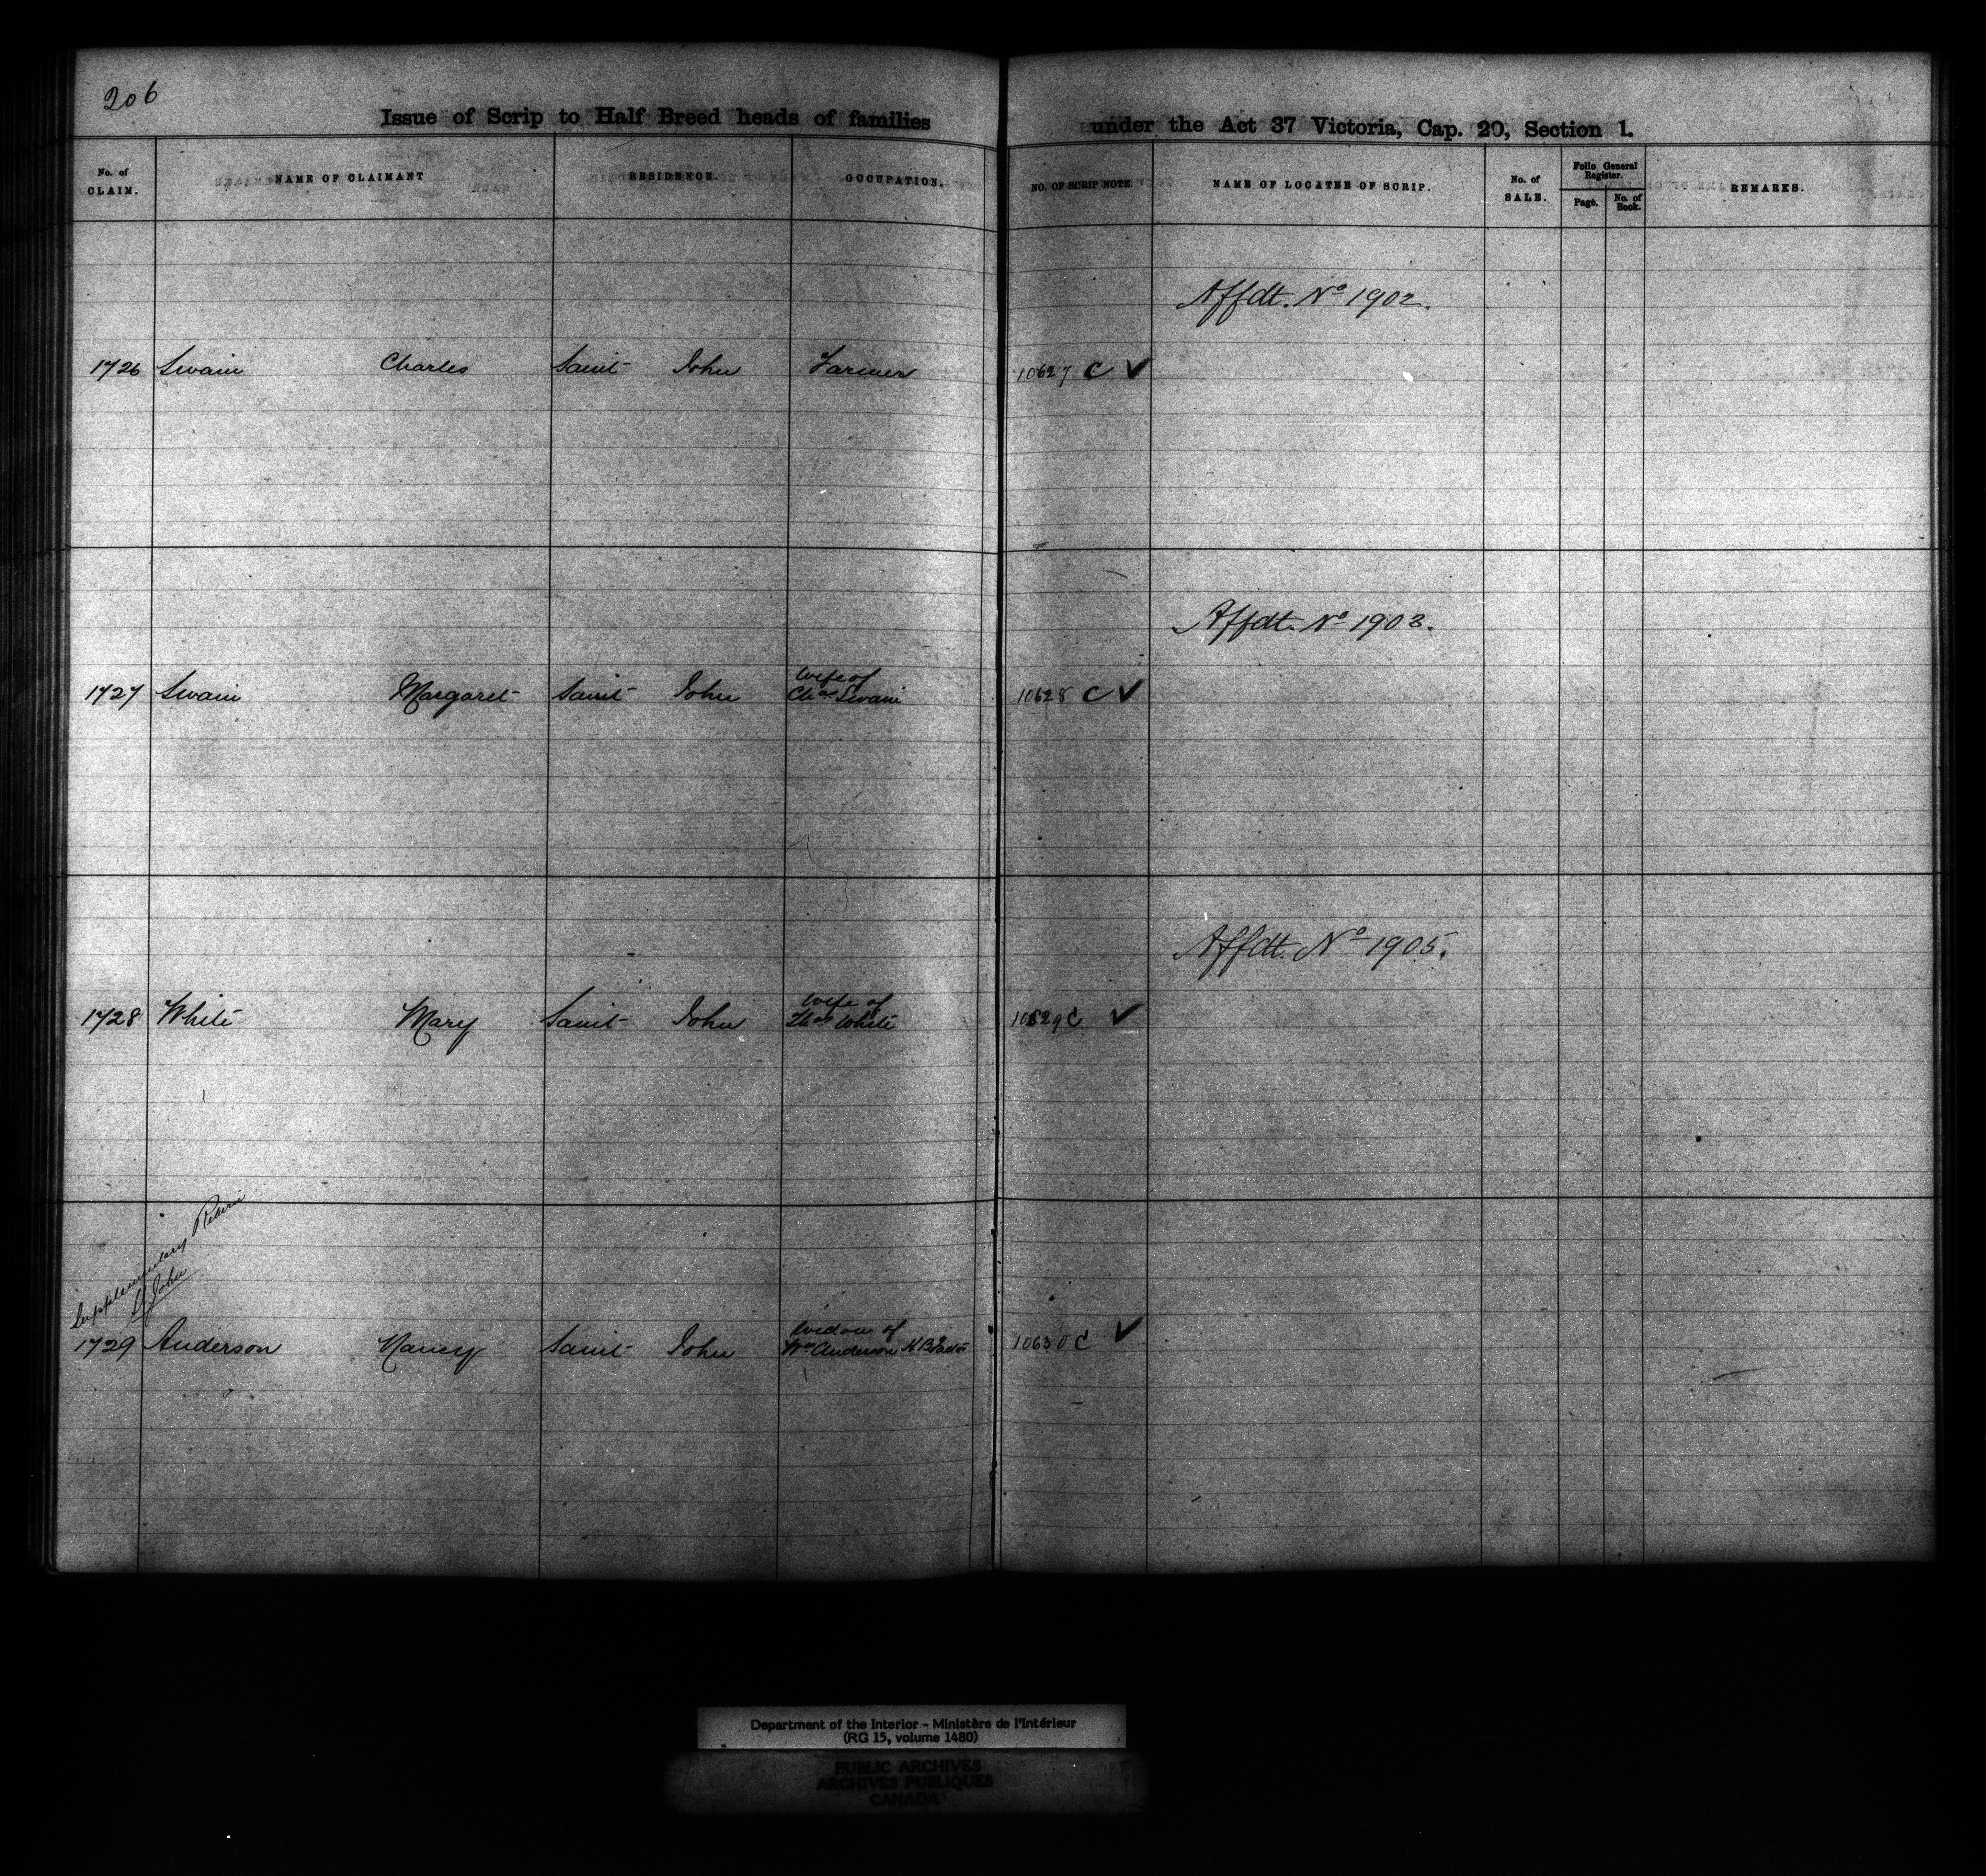 206
Issue of Scrip to Half Breed heads of families under the Act 37 Victoria, Cap. 20, Section 1.
No. of CLAIM. NAME OF CLAIMANT RESIDENCE. OCCUPATION. NO. OF SCRIP NOTE. NAME OF LOCATEE OF SCRIP. No. of SALE. Folio General Register. Page. No. of Book. REMARKS.
Affdt. No 1902.
1726 Swain Charles Saint John Farmer 10627 C ✓
Affdt. No 1903.
wife of
1727 Swain Margaret Saint John Chas Swain 10628 C ✓
Affdt. No 1905.
wife of
1728 White Mary Saint John Thos White 10629 C ✓
Supplementary
St John
widow of
1729 Anderson Nancy Saint John Wm Anderson 10630 C ✓
Department of the Interior - Ministère de l'Intérieur
(RG 15, volume 1480)
PUBLIC ARCHIVES
ARCHIVES PUBLIQUES
CANADA